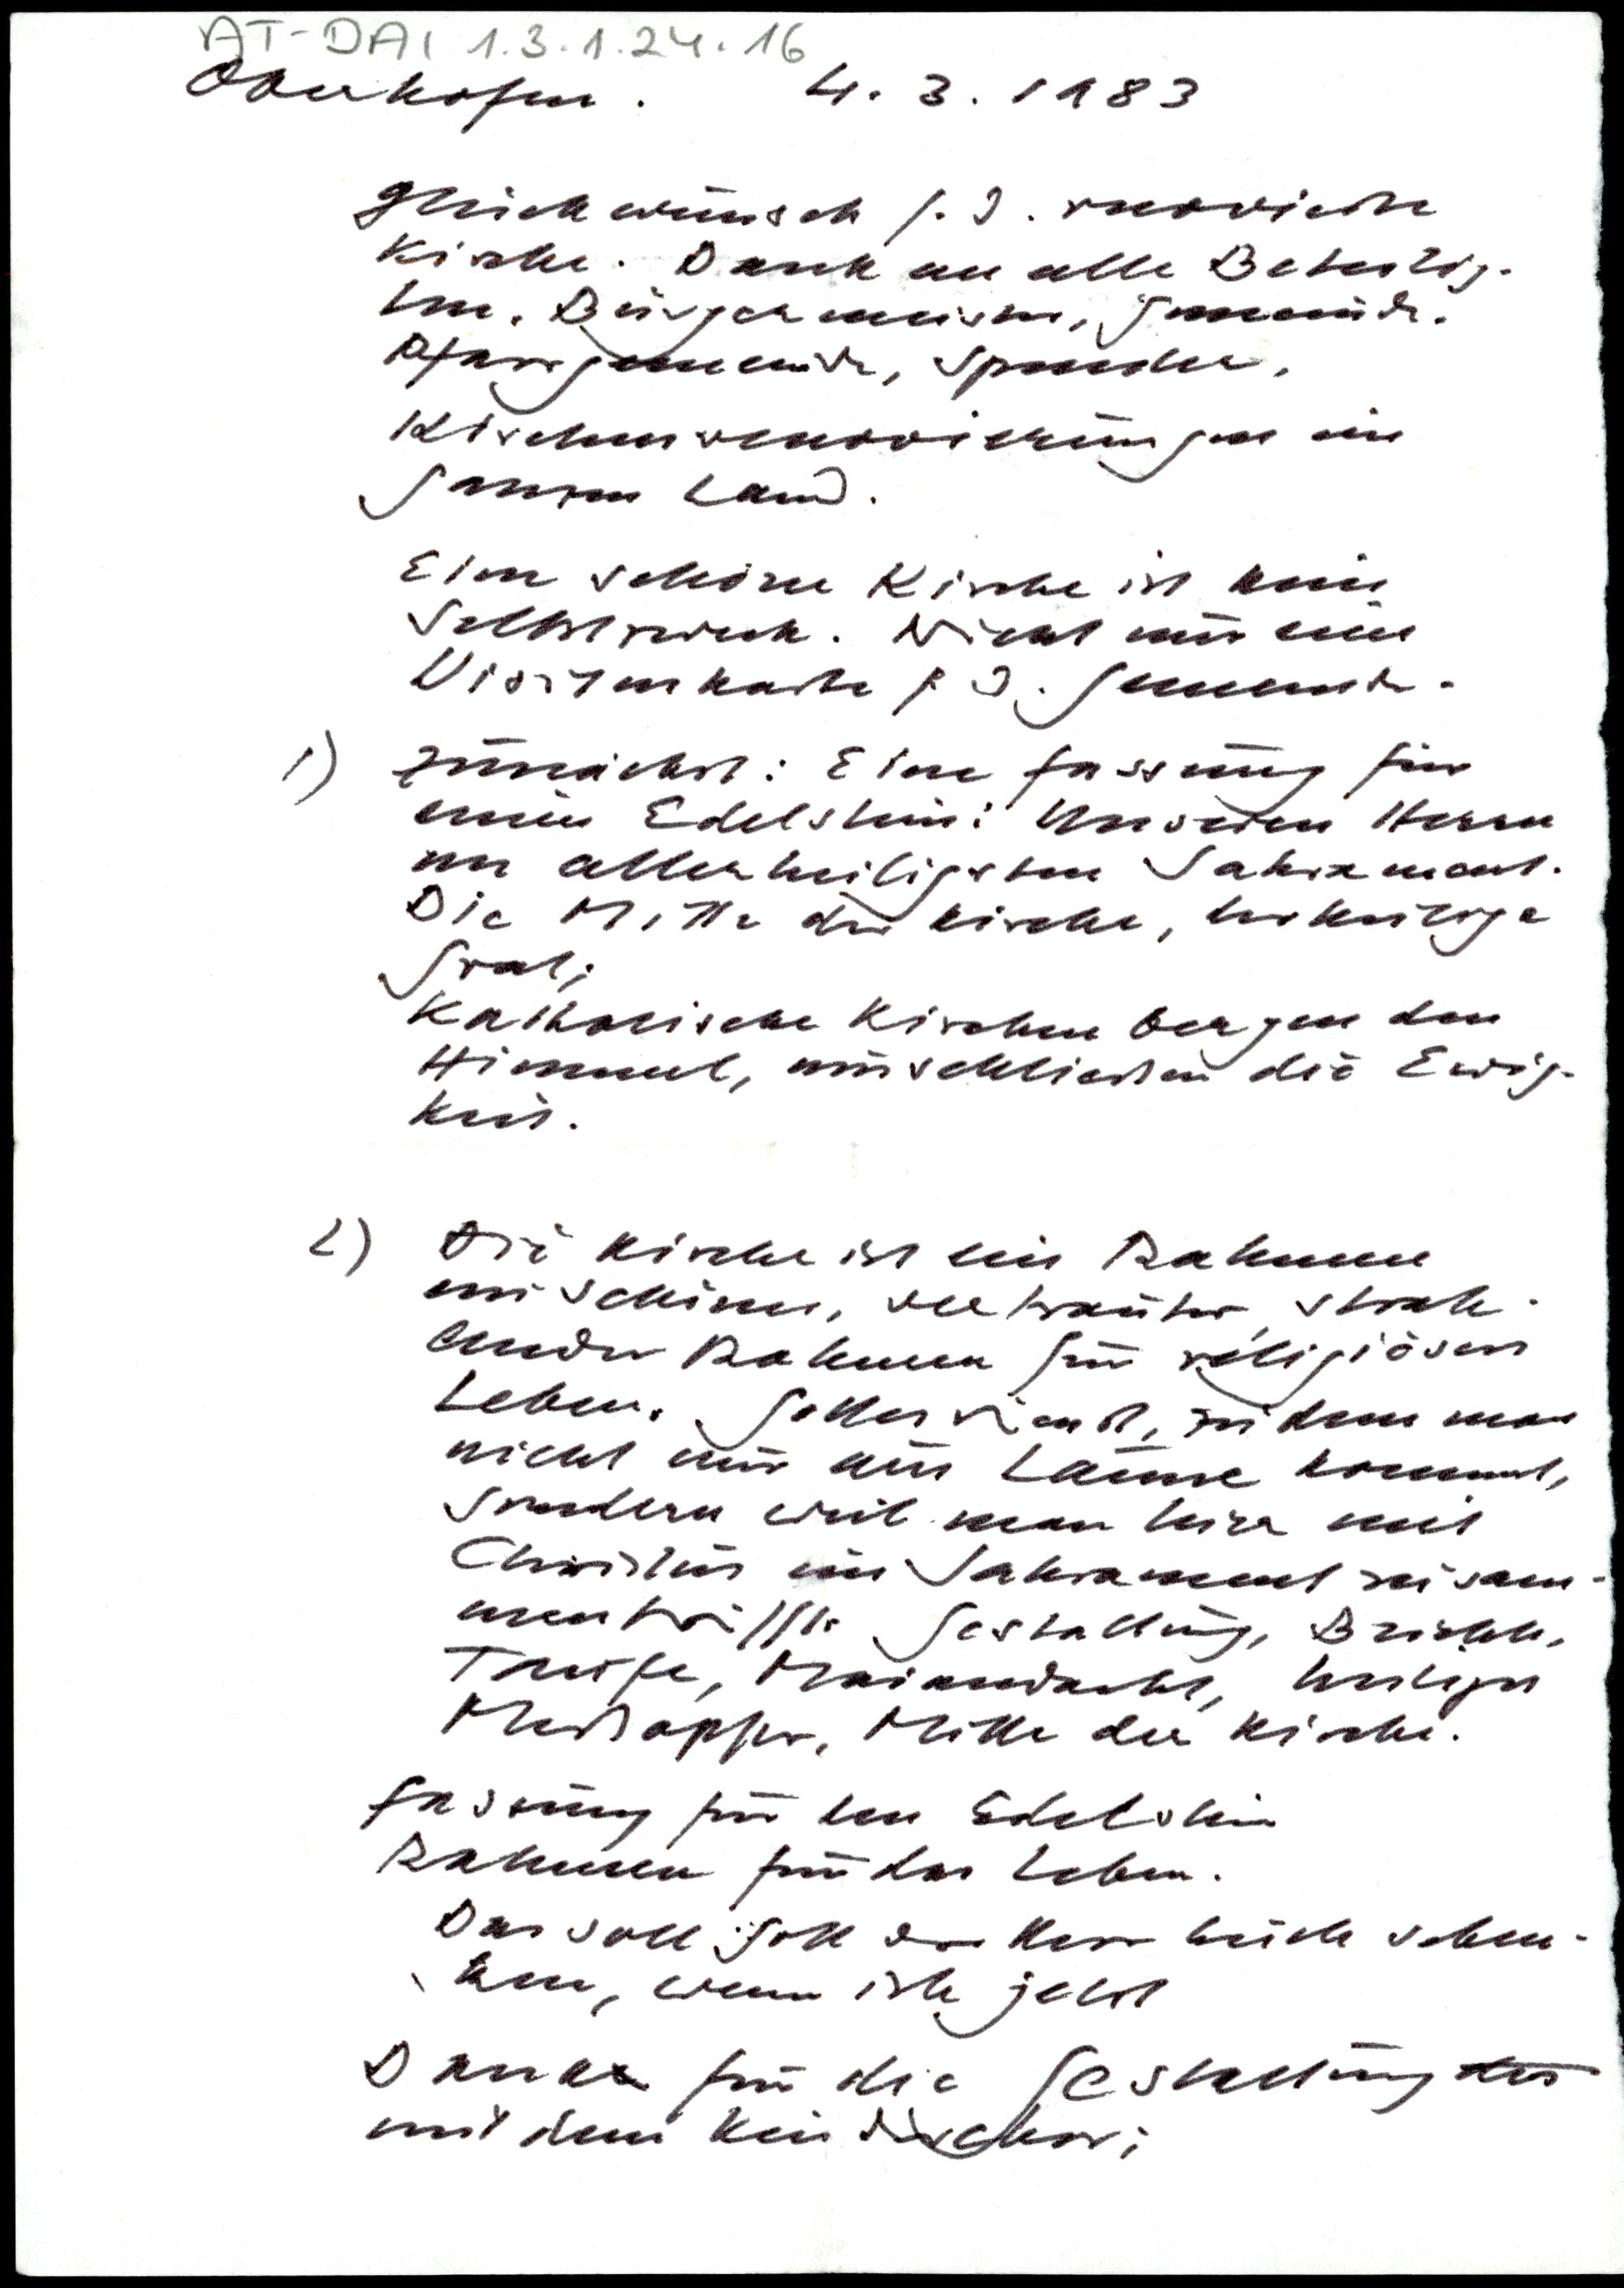 AT-DAI 1.3.1.24.16
Oberhofen. 4.3.1983
Glückwünsch f. d. renovierte
Kirche. Dank an alle Beteilig-
ten. Bürgermeister, Gemeinde.
Pfarrgemeinde, Spender.
Kirchenrenovierungen im
ganzen Land.
Eine schöne Kirche ist kein
Selbstzweck. Nicht nur eine
Visitenkarte f d. Gemeinde.
1) Zunächst: Eine Fassung für
einen Edelstein: Unseren Herrn
im allerheiligsten Sakrament.
Die Mitte der Kirche, der heilige
Gral;
Katholische Kirchen bergen den
Himmel, umschließen die Ewig-
keit.
2) Die Kirche ist ein Rahmen
ein schöner, vertrauter, strah-
lender Rahmen für religiöses
Leben. Gottesdienst, zu dem man
nicht nur aus Laune kommt,
sondern weil man hier mit
Christus im Sakrament zusam-
mentrifft. Gestaltung, Beichte,
Taufe, Maiandacht, heiliges
Meßopfer, Mitte der Kirche.
Fassung für den Edelstein
Rahmen für das Leben.
Das soll Gott der Herr heute schen-
ken, wenn ich jetzt
Dank für die Gestaltung
mit dem Kinderchor;